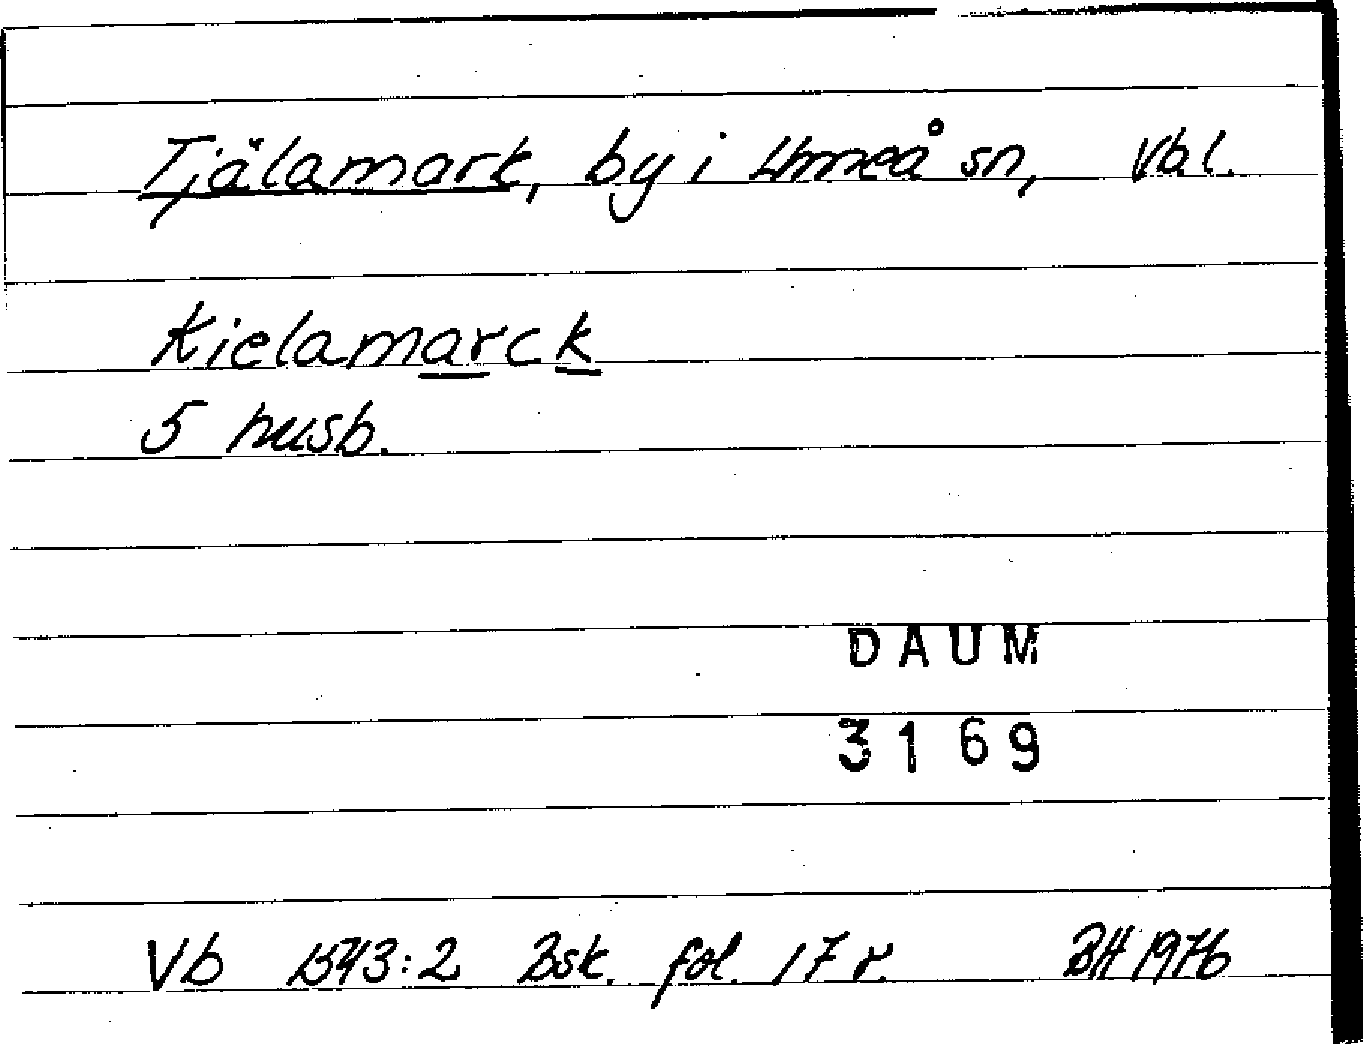 Tjälamark, by i Umeå sn, Vbl.
Kielamarck
5 husb.
DAUM
3169
Vb 1543:2 Bsk. fol. 17 r. BH 1976